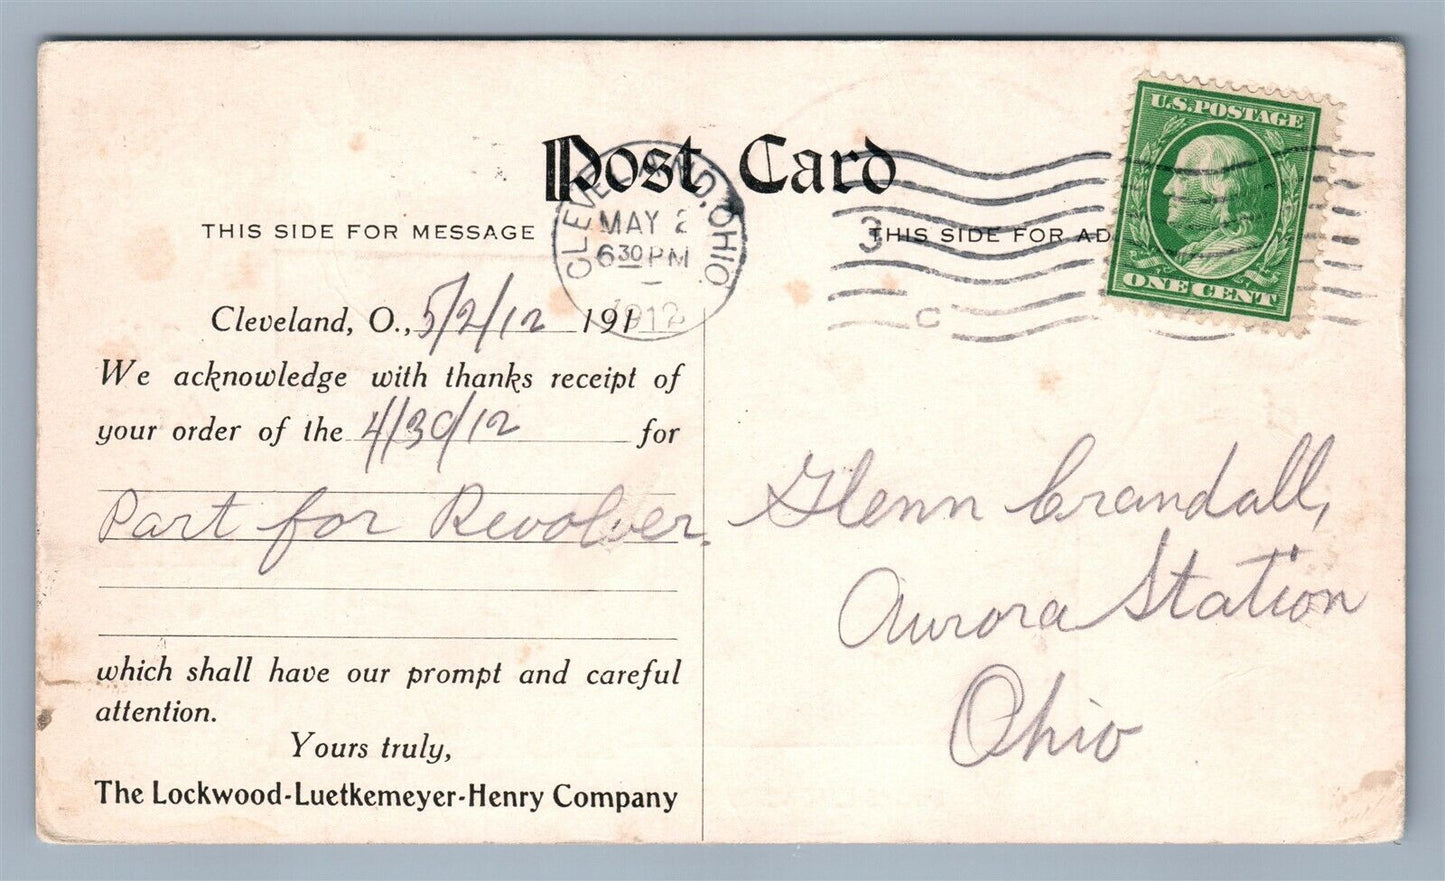 Post Card
THIS SIDE FOR MESSAGE
CLEVELAND, OHIO
MAY 2
6 30 PM
1912
3
C
THIS SIDE FOR AD
U.S. POSTAGE
ONE CENT
Cleveland, O., 5/2/12 191
We acknowledge with thanks receipt of
your order of the 4/30/12 for
Part for Revolver.
which shall have our prompt and careful
attention.
Yours truly,
The Lockwood-Luetkemeyer-Henry Company
Glenn Crandall,
Aurora Station
Ohio